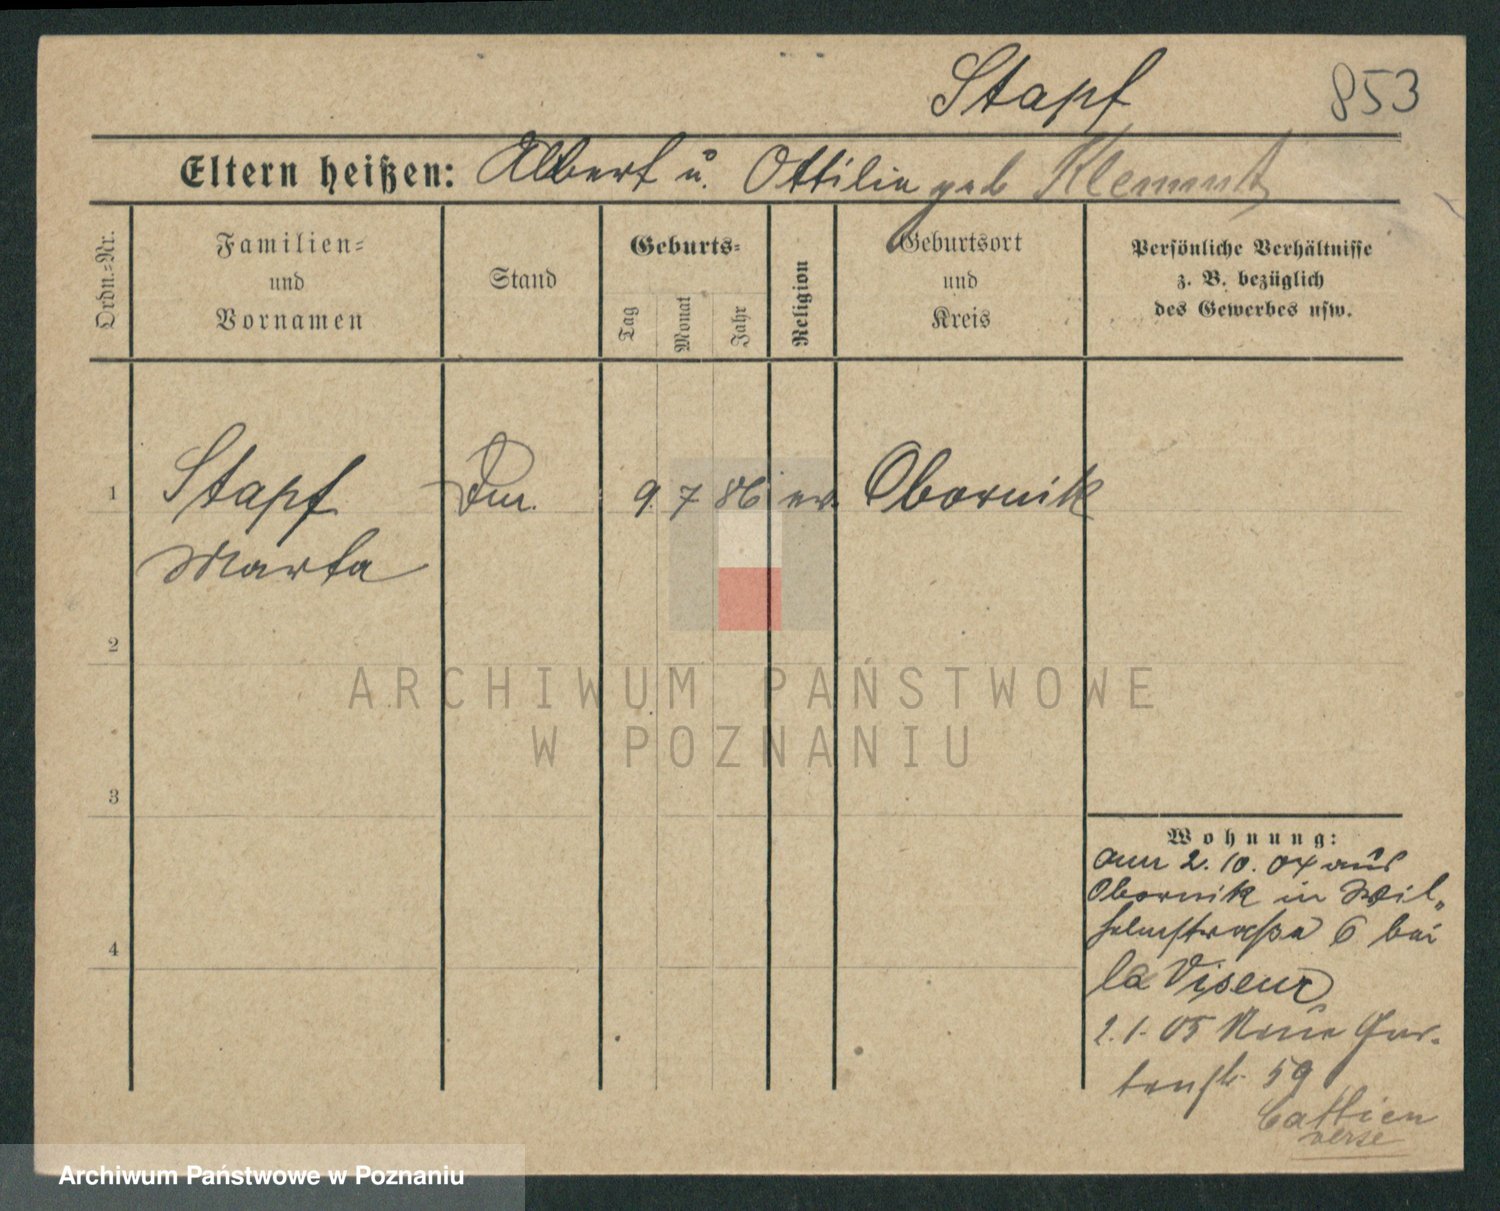 Stapf 853
Eltern heißen: Albert u. Ottilie geb Klemmt
Ordn.=Nr.
Familien=
und
Vornamen
Stand
Geburts=
Tag
Monat
Jahr
Religion
Geburtsort
und
Kreis
Persönliche Verhältnisse
z. B. bezüglich
des Gewerbes usw.
1 Stapf 9. 7 86 ev. Obornik
Marta
2
3
4
Wohnung:
am 2. 10. 04 aus
Obornik in Wil„
helmstraße 6 bei
la Viseur
2. 1. 05 Neue Gar-
tenstr. 59
ARCHIWUM PAŃSTWOWE
W POZNANIU
Archiwum Państwowe w Poznaniu